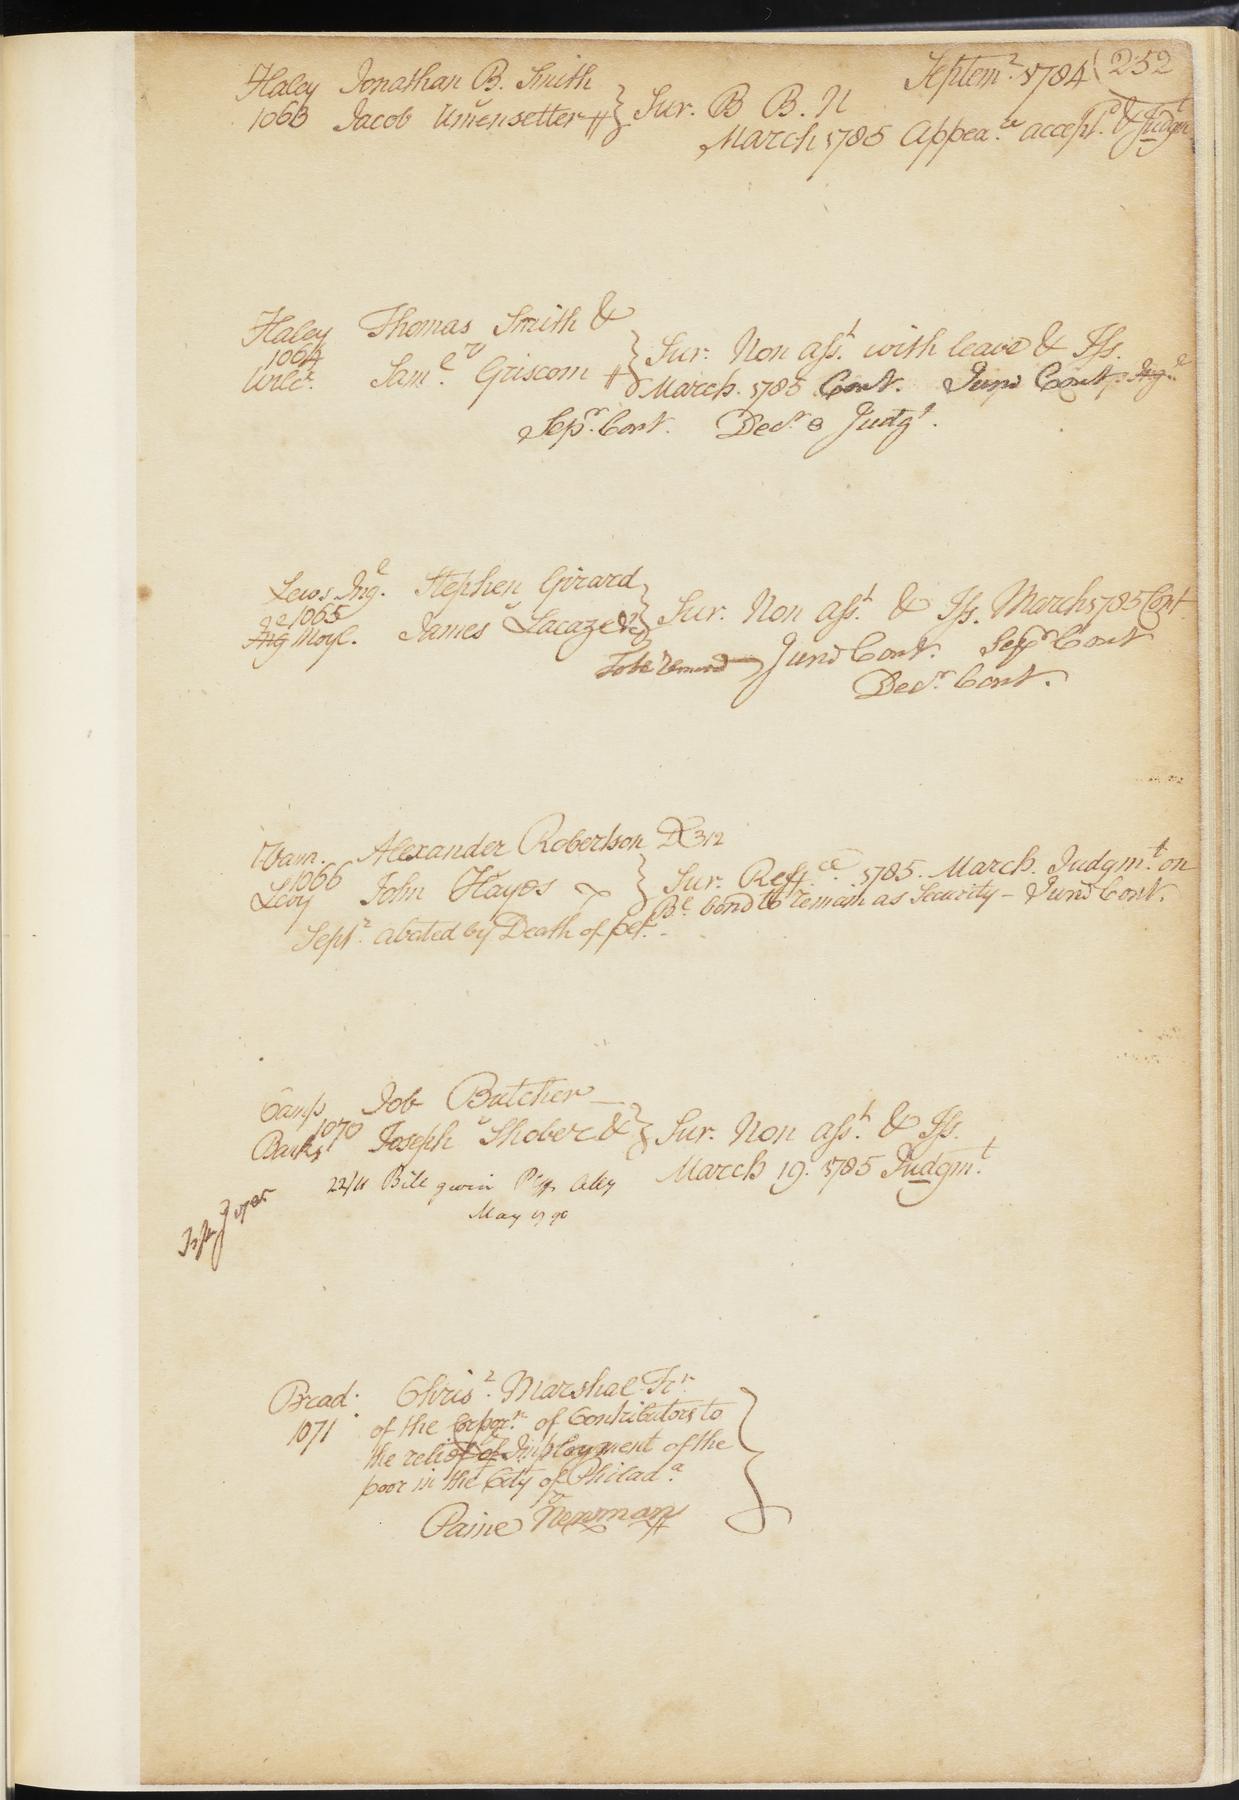 Septem.r 1784 (252
Haley Jonathan B. Smith
1063 Jacob v Umensetter } Sur. B B. N
March 1785 Appea.ce accept.d & Judgm.t
Haley Thomas Smith &
1064
Wilc. Sam.l v Griscom } Sur. Non ass.t with leave & Iss.
March. 1785 Cont. June Cont.
Sep.r Cont. Dec.r 8 Judg.t.
Lews. Ing.l Stephen Girard
1065
Ing Moyl. James v Lacaze } Sur. Non ass.t & Iss. March 1785 Cont
to be remov.d June Cont. Sep.r Cont
Dec.r Cont.
Alexander Robertson D 312
1066
Levy John v Hayes } Sur. Reff.ce 1785. March. Judgm.t on
B.l bond to remain as Security – June Cont.
Sept.r abated by Death of
Job Butcher
1070
Banks Joseph v Shober & } Sur. Non ass.t & Iss.
March 19. 1785 Judgm.t
22/11 Bill Atty
May 1790
Brad. Chris.r Marshal Tr.r
1071 of the Corpor.n of Contributors to
the relief of Imployment of the
poor in the City of Philad.a
v
Paine Newman }